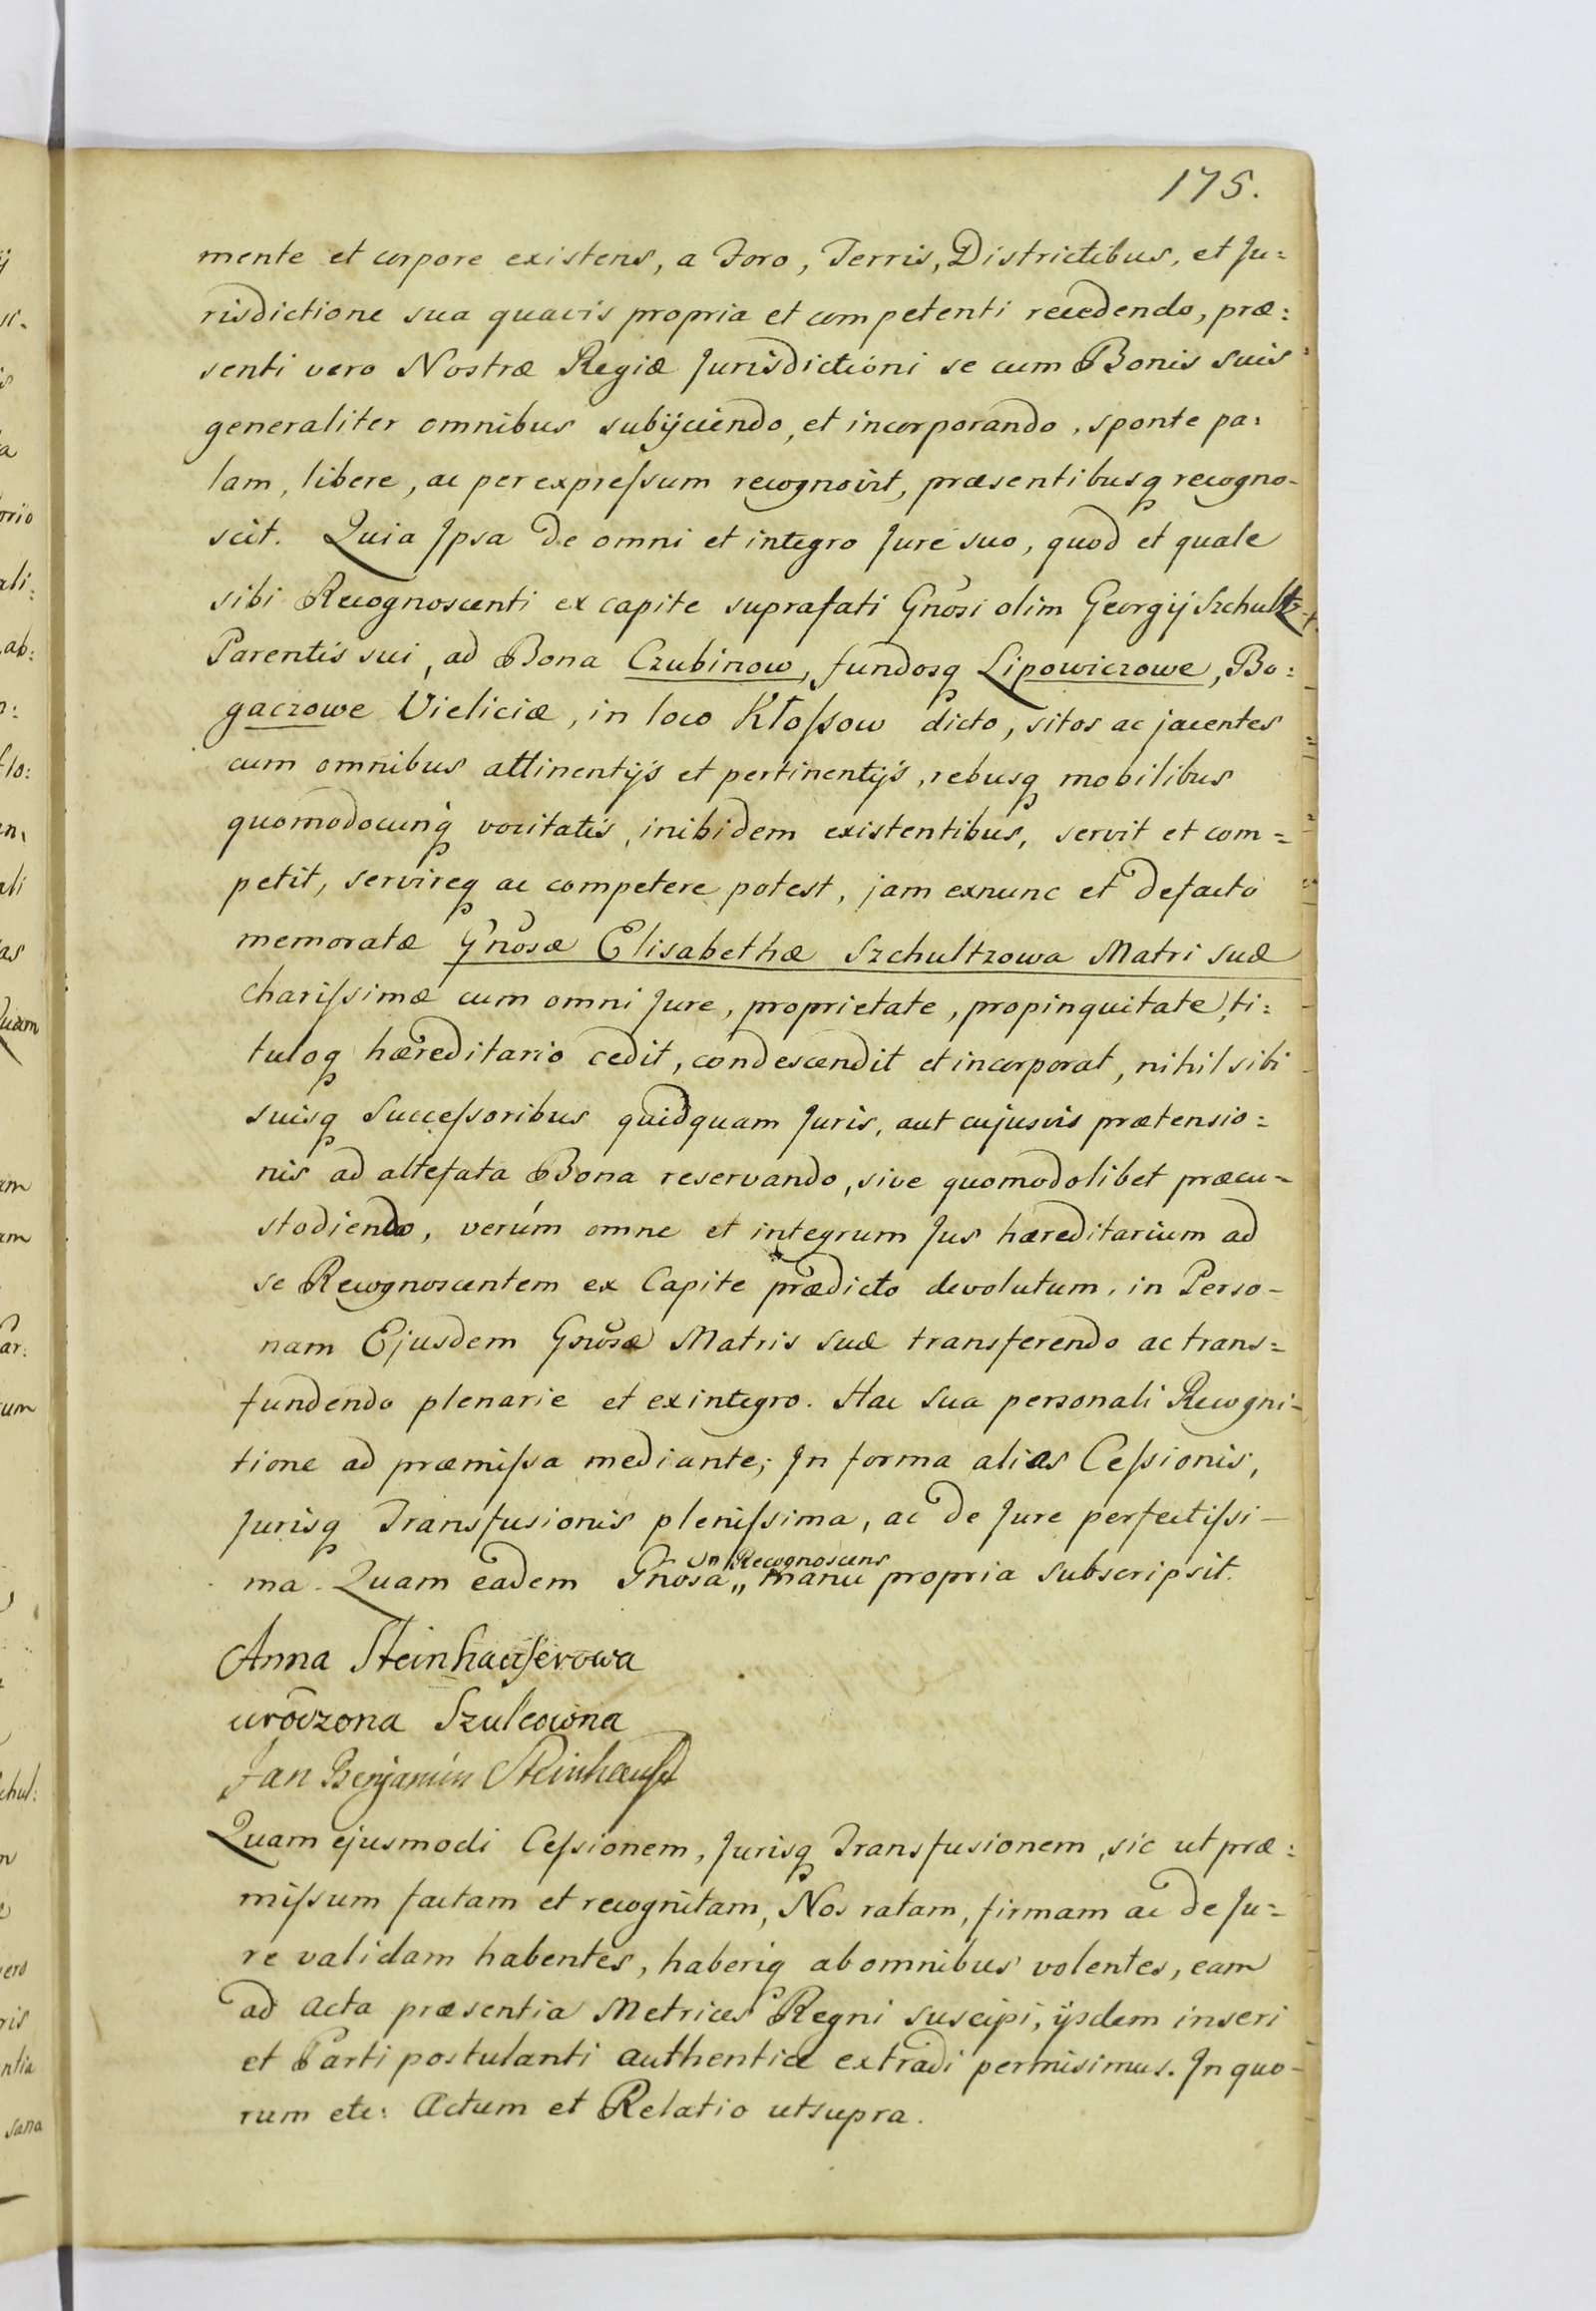 175.
mente et corpore existens, a Foro, Terris, Districtibus, et Ju:
risdictione sua quavis propria et competenti recedendo, præ:
senti vero Nostræ Regiæ Jurisdictioni se cum Bonis suis
generaliter omnibus subijciendo, et incorporando, sponte pa:
lam, libere, ac per expressum recognovit, præsentibusq recogno-
scit. Quia Ipsa de omni et integro Jure suo, quod et quale
sibi Recognoscenti ex capite suprafati Gnosi olim Georgij Szchultz
Parentis sui, ad Bona Czubinow, fundosq Lipowiczowe, Bo:
gaczowe Vieliciæ, in loco Kłossow dicto, sitos ac jacentes
cum omnibus attinentijs et pertinentijs, rebusq mobilibus
quomodocunq vocitatis, inibidem existentibus, servit et com=
petit, servireq ac competere potest, jam exnunc et defacto
memoratæ Gnosæ Elisabethæ Szchultzowa Matri suæ
charissimæ cum omni Jure, proprietate, propinquitate, ti:
tuloq hæreditario cedit, condescendit et incorporat, nihil sibi
suisq Successoribus quidquam Juris, aut cujusvis prætensio=
nis ad altefata Bona reservando, sive quomodolibet præcu=
stodiendo, verúm omne et integrum Jus hæreditarium ad
se Recognoscentem ex Capite prædicto devolutum, in Perso-
nam Ejusdem Gnosæ Matris suæ transferendo ac trans=
fundendo plenarie et exintegro. Hac sua personali Recogni-
tione ad præmissa mediante; In forma alias Cessionis,
Jurisq Transfusionis plenissima, ac de Jure perfectissi-
ma. Quam eadem Gnosa „ Recognoscens manu propria subscripsit.
Anna Steinhauserowa
urodzona Szulcowna
Jan Benjamin Steinhauser
Quam ejusmodi Cessionem, Jurisq Transfusionem, sic ut præ:
missum factam et recognitam, Nos ratam, firmam ac de Ju=
re validam habentes, haberiq ab omnibus volentes, eam
ad Acta præsentia Metrices Regni suscipi, ijsdem inseri
et Parti postulanti authenticè extradi permisimus. In quo-
rum etc: Actum et Relatio utsupra.